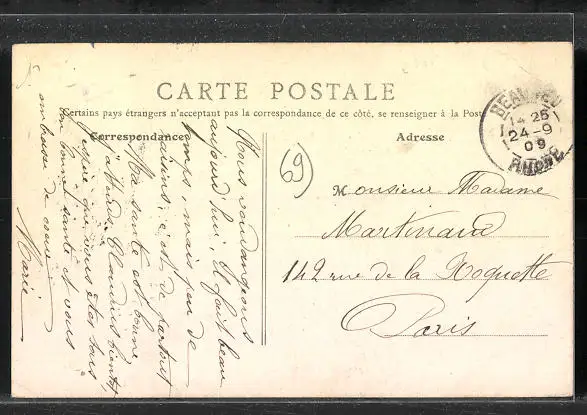 CARTE POSTALE
Certains pays étrangers n'acceptant pas la correspondance de ce côté, se renseigner à la Poste
Correspondance
Adresse
BEAUJEU
14 25
24-9
09
RHONE
69
Monsieur Madame
Martinaud
142 rue de la Roquette
Paris
Nous vendangeons
aujourd'hui. Il fait beau
temps, mais peu de
raisins, c'est de partout
Ma santé est bonne
j'attends Claudius bientôt,
j'espère que vous êtes tous
en bonne santé et vous
embrasse de cœur
Marie